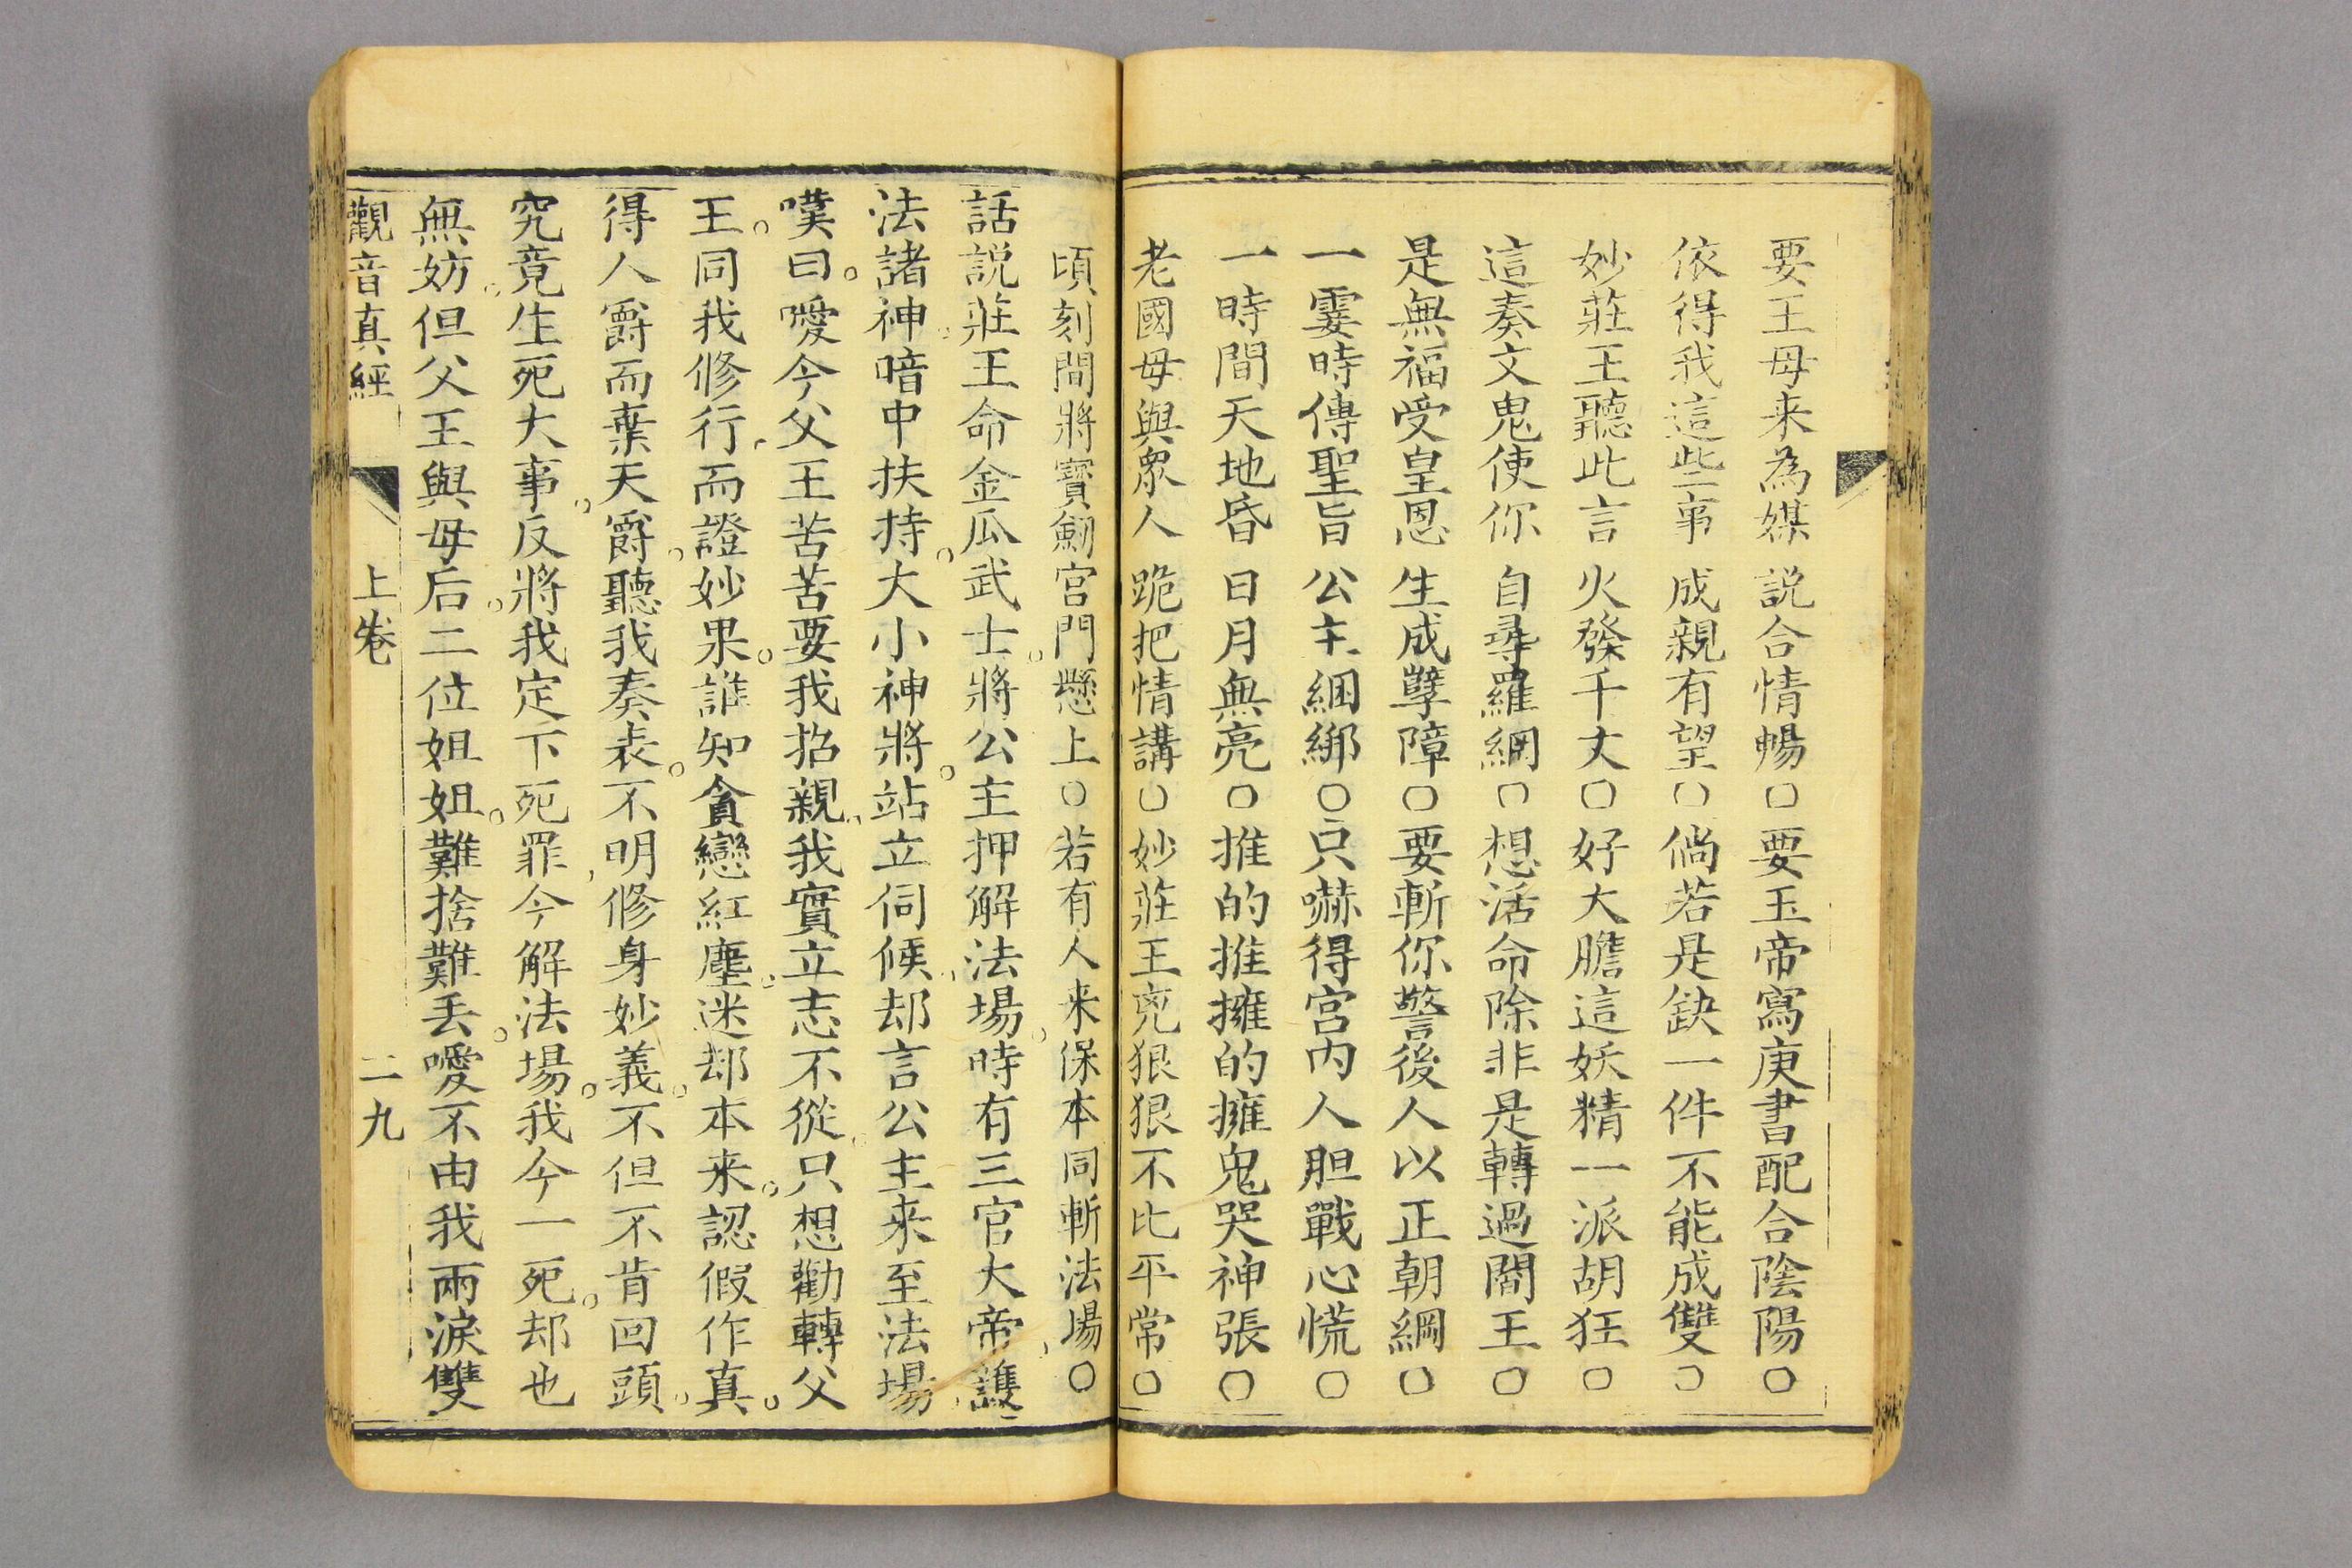 要王母来為媒說合情暢○要玉帝寫庚書配合陰陽○
依得我這些事成親有望○倘若是缺一件不能成雙○
妙莊王聽此言火發千丈○好大膽這妖精一派胡狂○
這奏文鬼使你自尋羅網○想活命除非是轉過閻王○
是無福受皇恩生成孽障○要斬你警後人以正朝綱○
一霎時傳聖旨公主綑綁○只嚇得宮內人胆戰心慌○
一時間天地昏日月無亮○推的推擁的擁鬼哭神張○
老國母與眾人跪把情講○妙莊王兇狠狠不比平常○
頃刻間將寶劍宮門懸上○若有人来保本同斬法場○
話説莊王命金瓜武士。將公主押解法場。時有三官大帝，護
法諸神。暗中扶持。大小神將。站立伺候，却言公主来至法場，
嘆曰。噯今父王苦苦要我招親，我實立志不從。只想勸轉父
王。同我修行，而證妙果。誰知貪戀紅塵。迷却本来。認假作真。
得人爵而棄天爵。聽我奏表。不明修身妙義。不但不肯回頭。
究竟生死大事。反將我定下死罪，今解法場。我今一死。却也
無妨。但父王與母后。二位姐姐。難捨難丢。噯不由我兩淚雙
觀音真經　上卷　二九